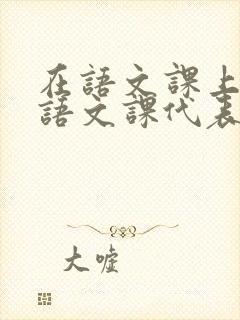 在語文課上
語文課代表
大噓